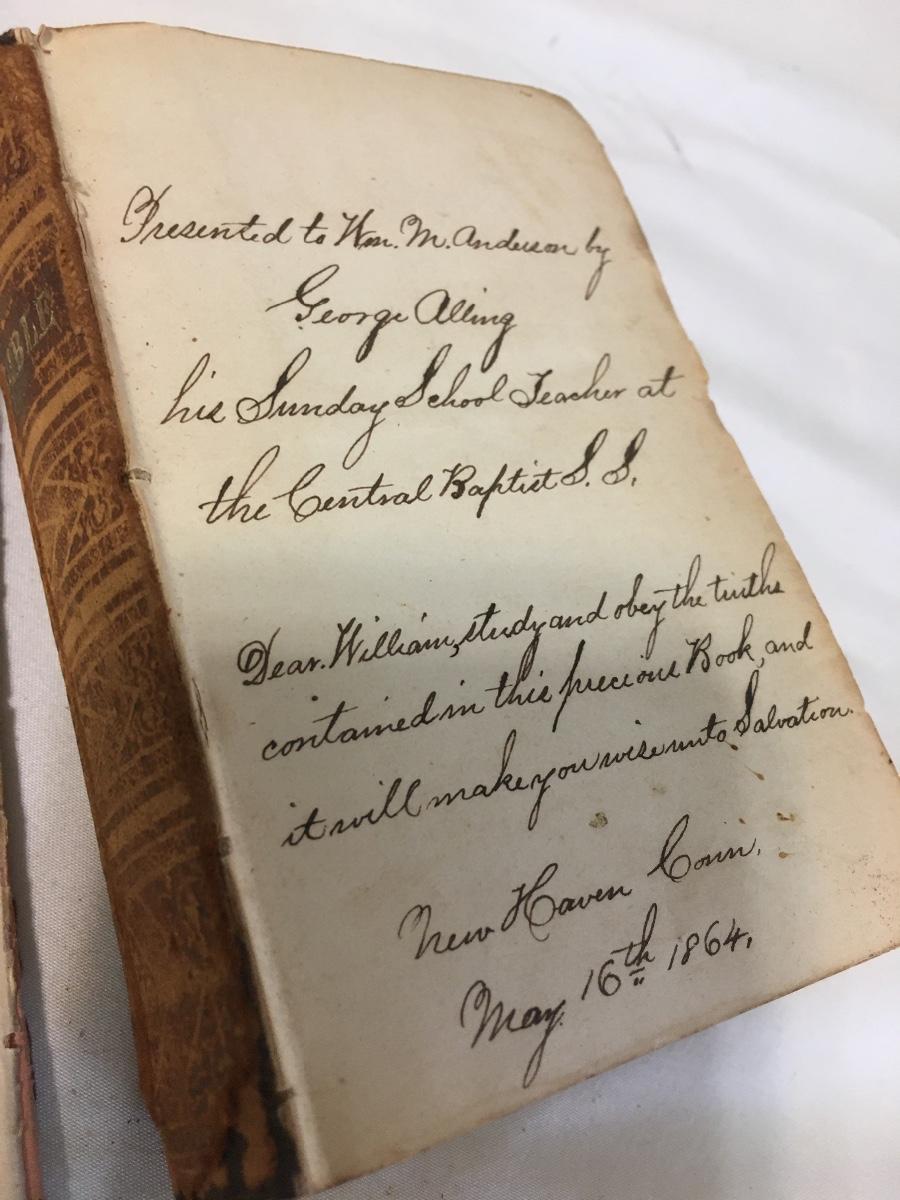 Presented to Wm. M. Anderson by
George Alling
his Sunday School Teacher at
the Central Baptist S. S.
Dear William, study and obey the truths
contained in this precious Book, and
it will make you wise unto Salvation.
New Haven Conn.
May 16th 1864.
BLE